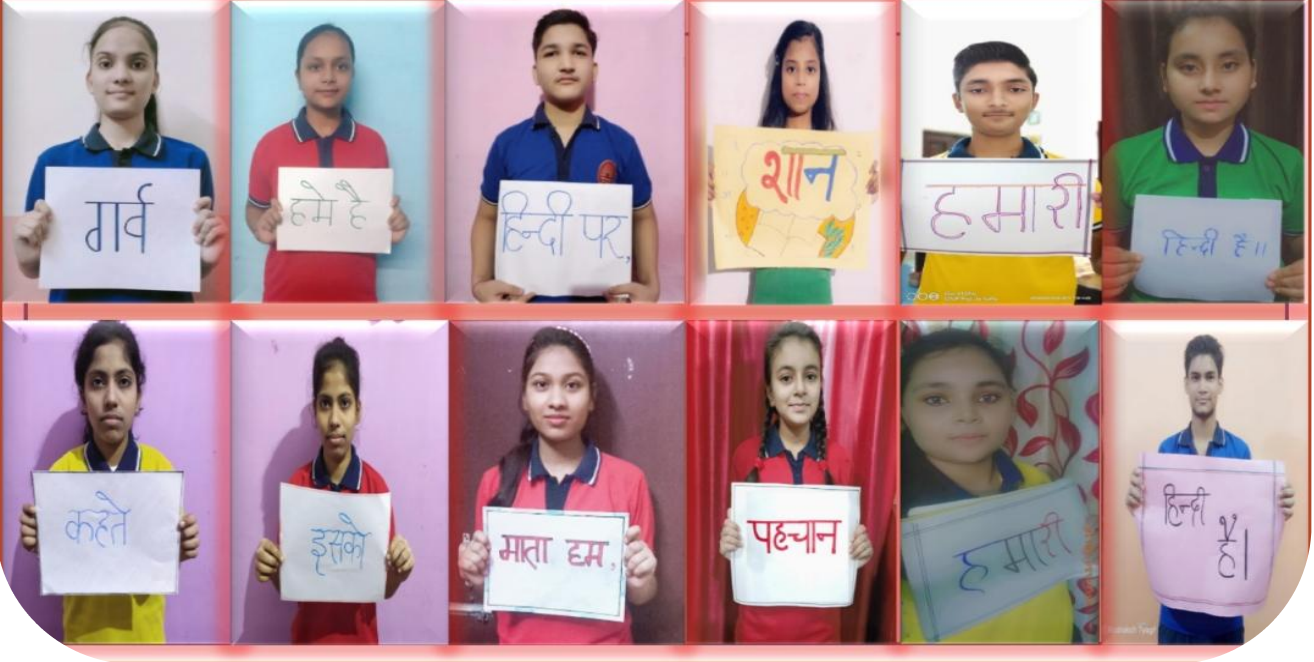 गर्व
हमे है
हिन्दी पर,
शान
हमारी
हिन्दी है॥
कहते
इसको
माता हम,
पहचान
हमारी
हिन्दी
है।